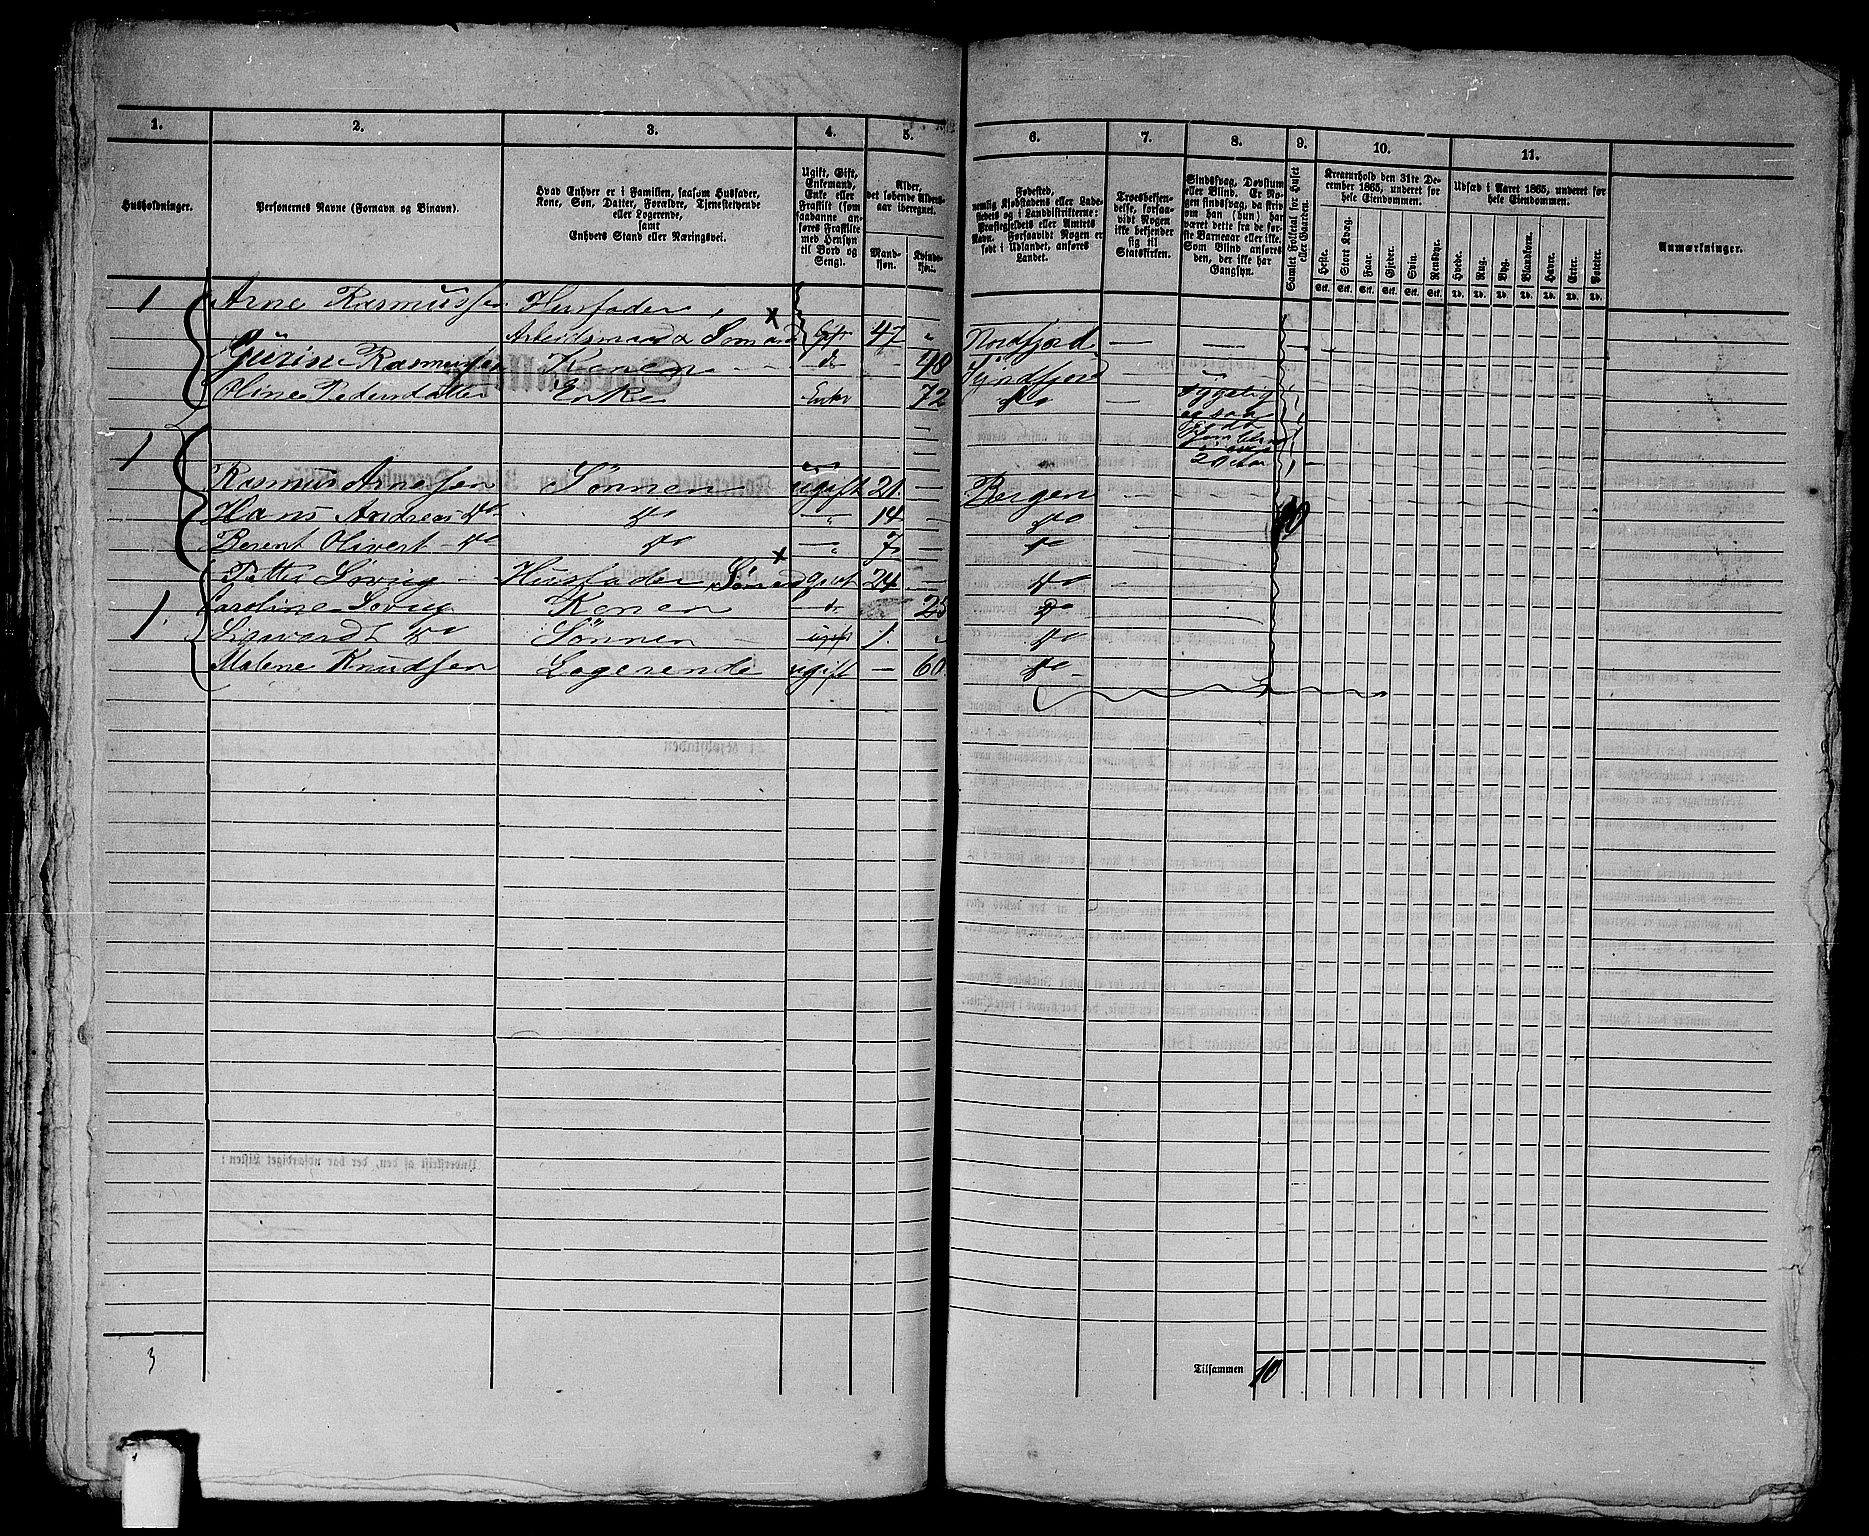 1. 2. 3. 4. 5. 6. 7. 8. 9. 10. 11.
Husholdninger.
Personernes Navne (Fornavn og Binavn).
Hvad Enhver er i Familien, saasom Husfader,
Kone, Søn, Datter, Forældre, Tjenestetyende
eller Logerende,
samt
Enhvers Stand eller Næringsvei.
Ugift, Gift,
Enkemand,
Enke eller
Fraskilt (som
saadanne an-
føres Fraskilte
med Hensyn
til Bord og
Seng).
Alder,
det løbende Alders-
aar iberegnet.
Mand-
kjøn.
Kvinde-
kjøn.
Fødested,
nemlig Kjøbstadens eller Lade-
stedets og i Landdistrikterne:
Præstegjeldets eller Amtets
Navn. Forsaavidt Nogen er
født i Udlandet, anføres
Landet.
Troesbekjen-
delse, forsaa-
vidt Nogen
ikke bekjender
sig til
Statskirken.
Sindssvag, Døvstum
eller Blind. Er No-
gen sindssvag, da skriv
om han (hun) har
været dette fra de før-
ste Barneaar eller ikke.
Som Blind anføres
den, der ikke har
Gangsyn.
Samlet Folketal for Huset
eller Gaarden.
Kreaturhold den 31te De-
cember 1865, underet for
hele Eiendommen.
Heste. Stort Kvæg. Faar. Gjeder. Svin. Rensdyr.
Stk. Stk. Stk. Stk. Stk. Stk.
Udsæd i Aaret 1865, underet for
hele Eiendommen.
Hvede. Rug. Byg. Blandkorn. Havre. Erter. Poteter.
Td. Td. Td. Td. Td. Td. Td.
Anmærkninger.
1 Arne Rasmussen Husfader,
Arbeidsmand x Gift 47 " Nordfjord — —
Gürin Rasmussen Konen — do - 48 —
Pedersdatter Enke Enke 72 do —
1
20 Aar
Rasmus Arnessen Sønnen ugift 21. — Bergen
Hans Andreas do do — " 14 — do 10
Berent Olivert — do do — " 7 — do
Petter Løvig — Husfader x Gift 24 — do
1. Caroline Løvig Konen — do 25 do
do Sønnen — ugift 1. do
Malene Knudsen Logerende ugift — 60 do
3
Tilsammen 10